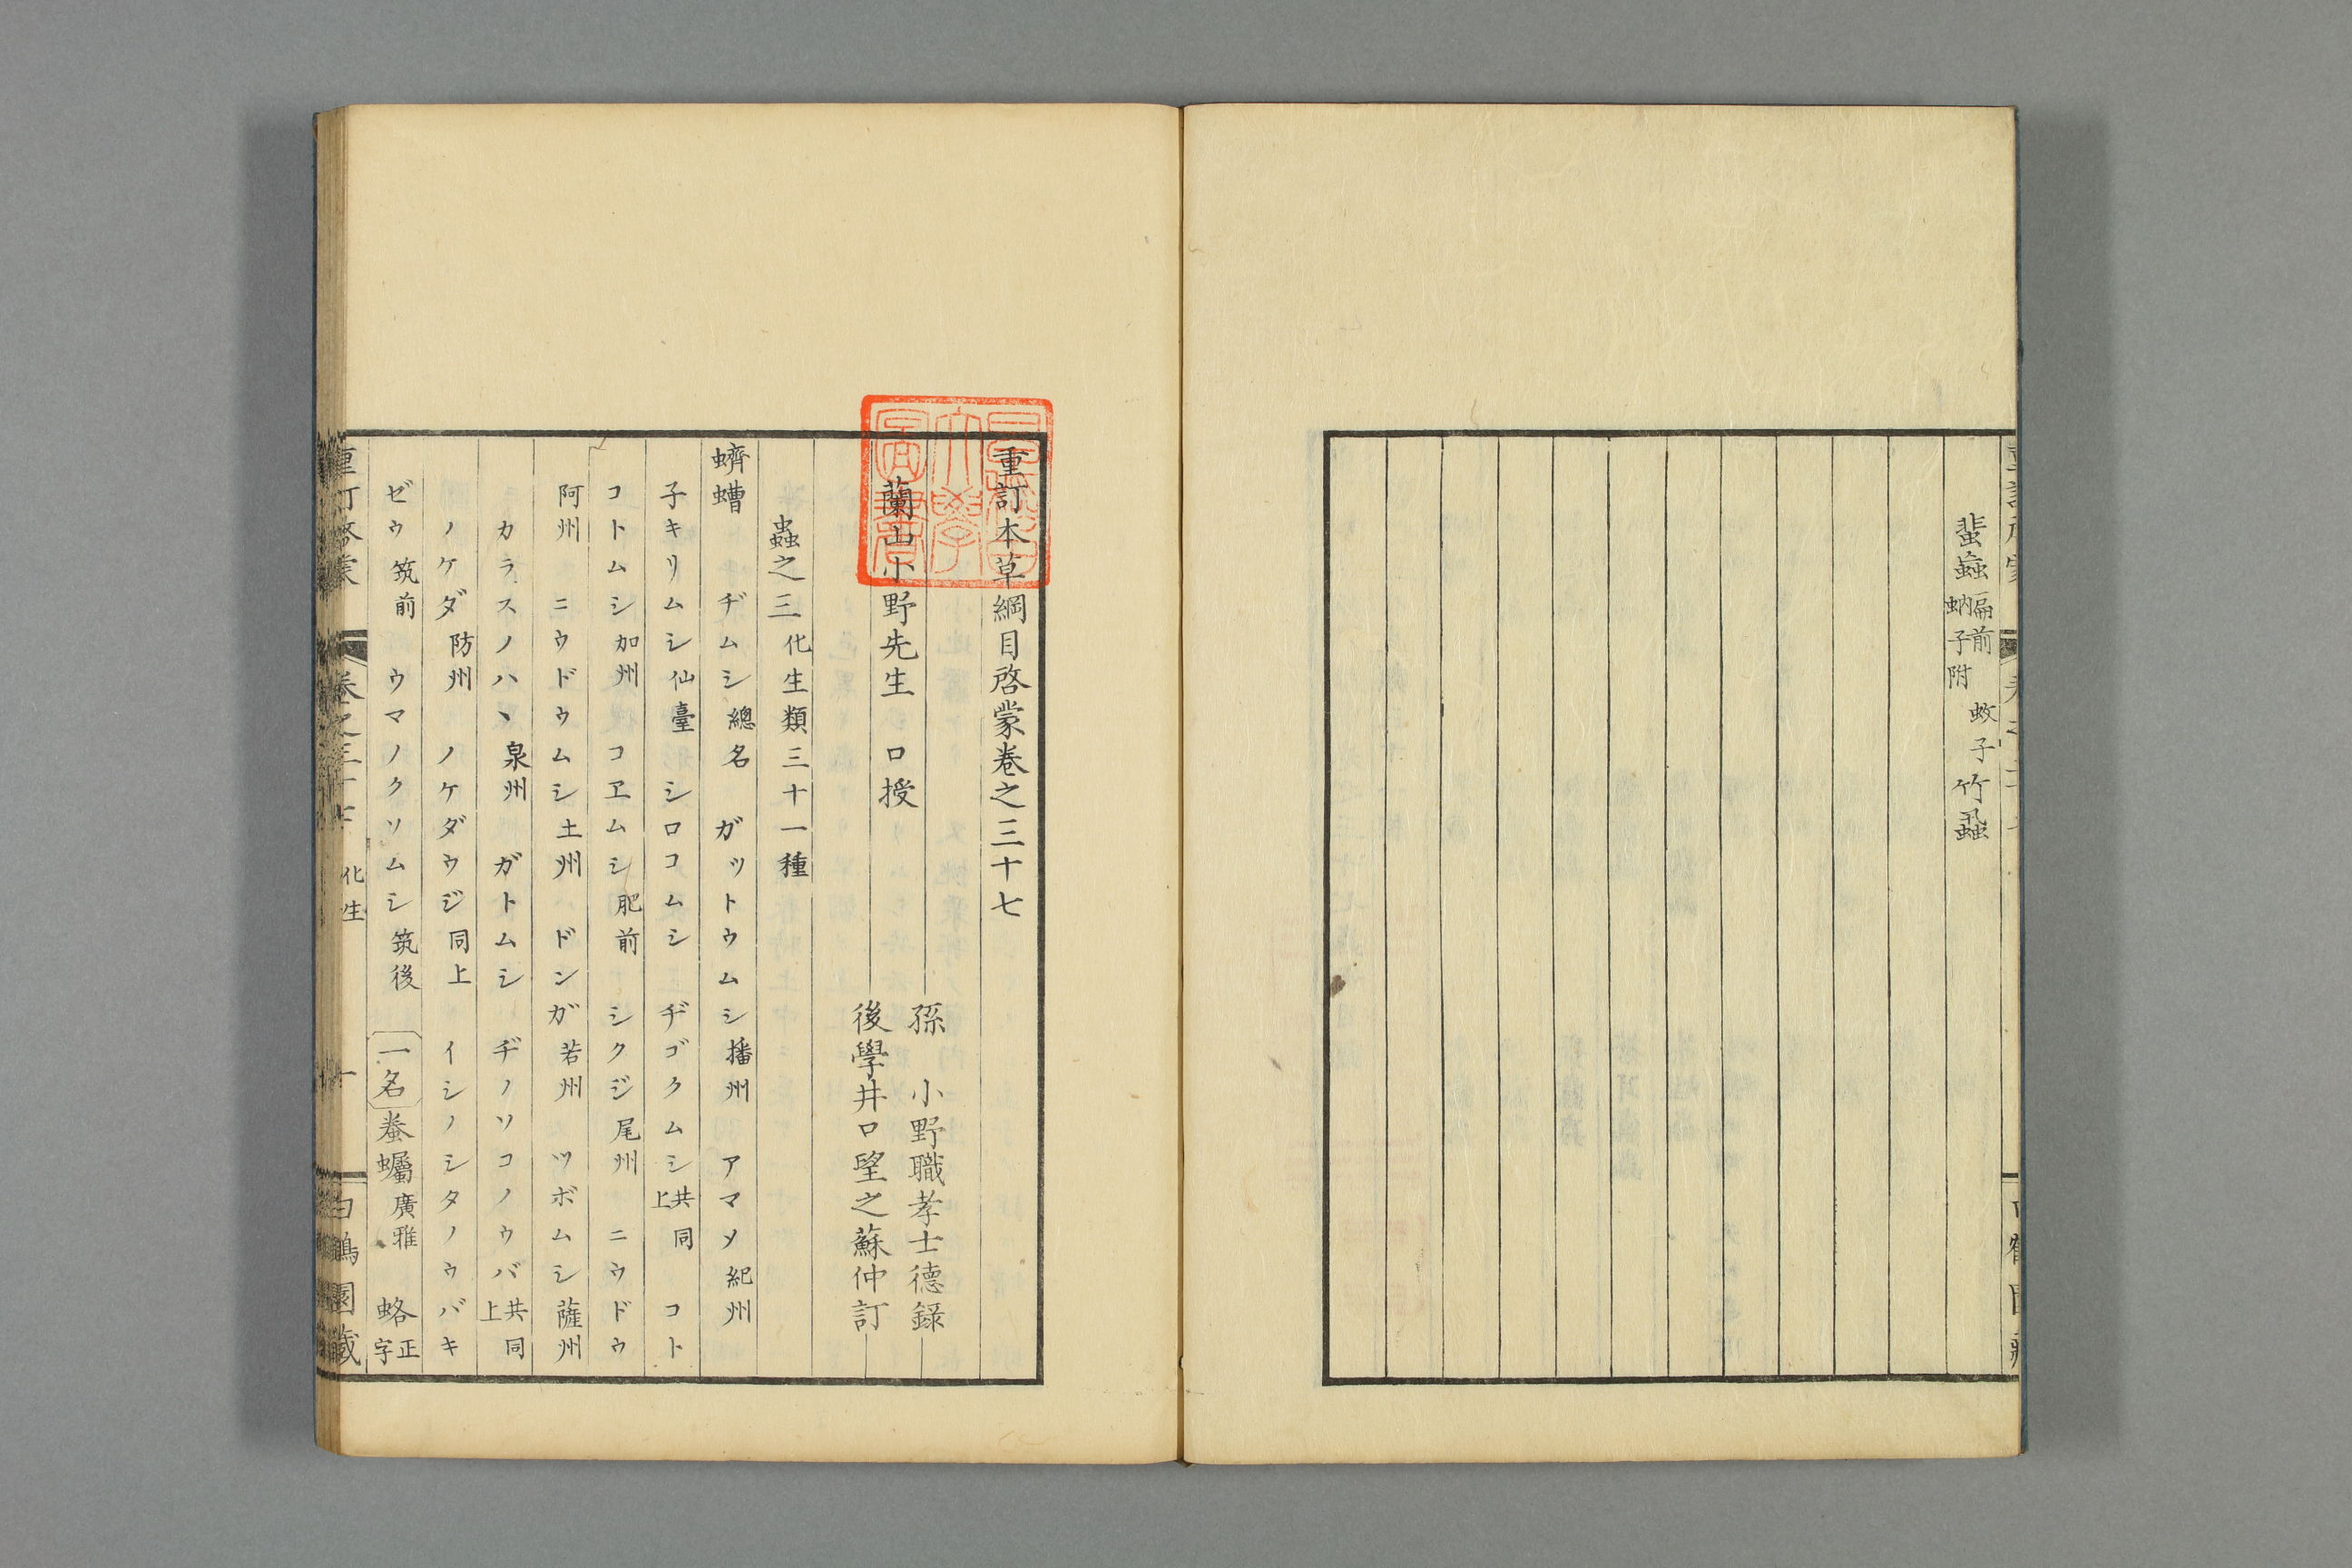 蜚蝱 扁前 蚋子附 蚊子 竹蝨
重訂本草綱目啓蒙卷之三十七
孫 小野職孝士德錄
蘭山小野先生 口授
後學井口望之蘇仲訂
蟲之三 化生類三十一種
蠐螬 ヂムシ 總名 ガットウムシ 播州 アマメ 紀州
子キリムシ 仙臺 シロコムシ ヂゴクムシ 共同上 コト
コトムシ 加州 コヱムシ 肥前 シクジ 尾州 ニウドウ
阿州 ニウドウムシ 土州 ドンガ 若州 ツボムシ 薩州
カラスノハヽ 泉州 ガトムシ ヂノソコノウバ 共同上
ノケダ 防州 ノケダウジ 同上 イシノシタノウバキ
ゼウ 筑前 ウマノクソムシ 筑後 一名 蝼蠾 廣雅 蛒 正字
重訂啓蒙 卷之三十七 化生 十 白鶴園藏